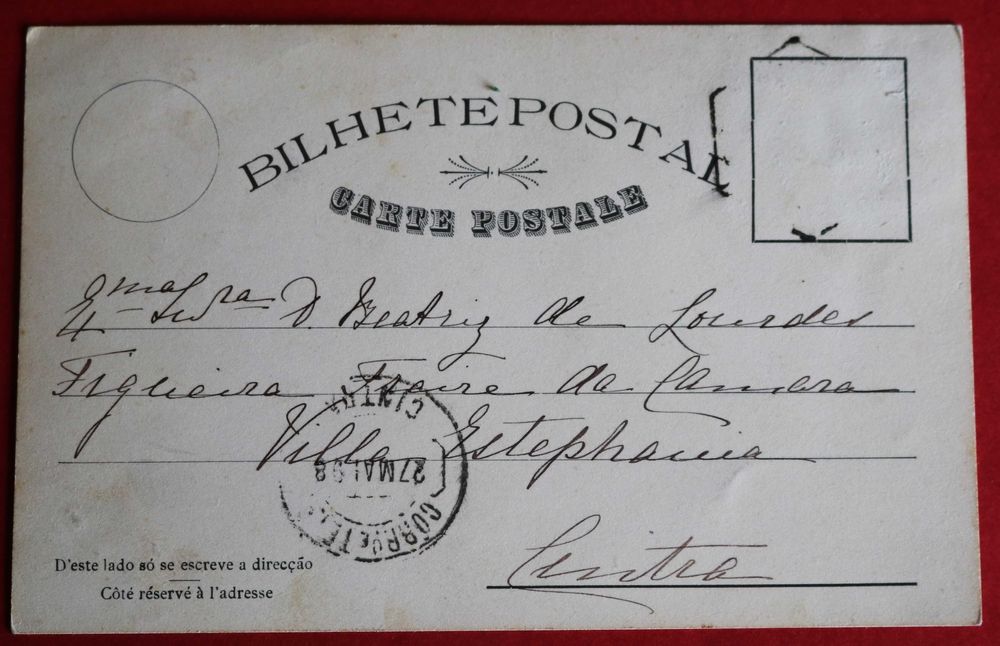 BILHETE POSTAL
CARTE POSTALE
D. Beatriz de Lourdes
Figueira Freire da Camara
Villa Estephania
Cintra
CINTRA
27 MAI 98
CORR. E TEL.
D'este lado só se escreve a direcção
Côté réservé à l'adresse